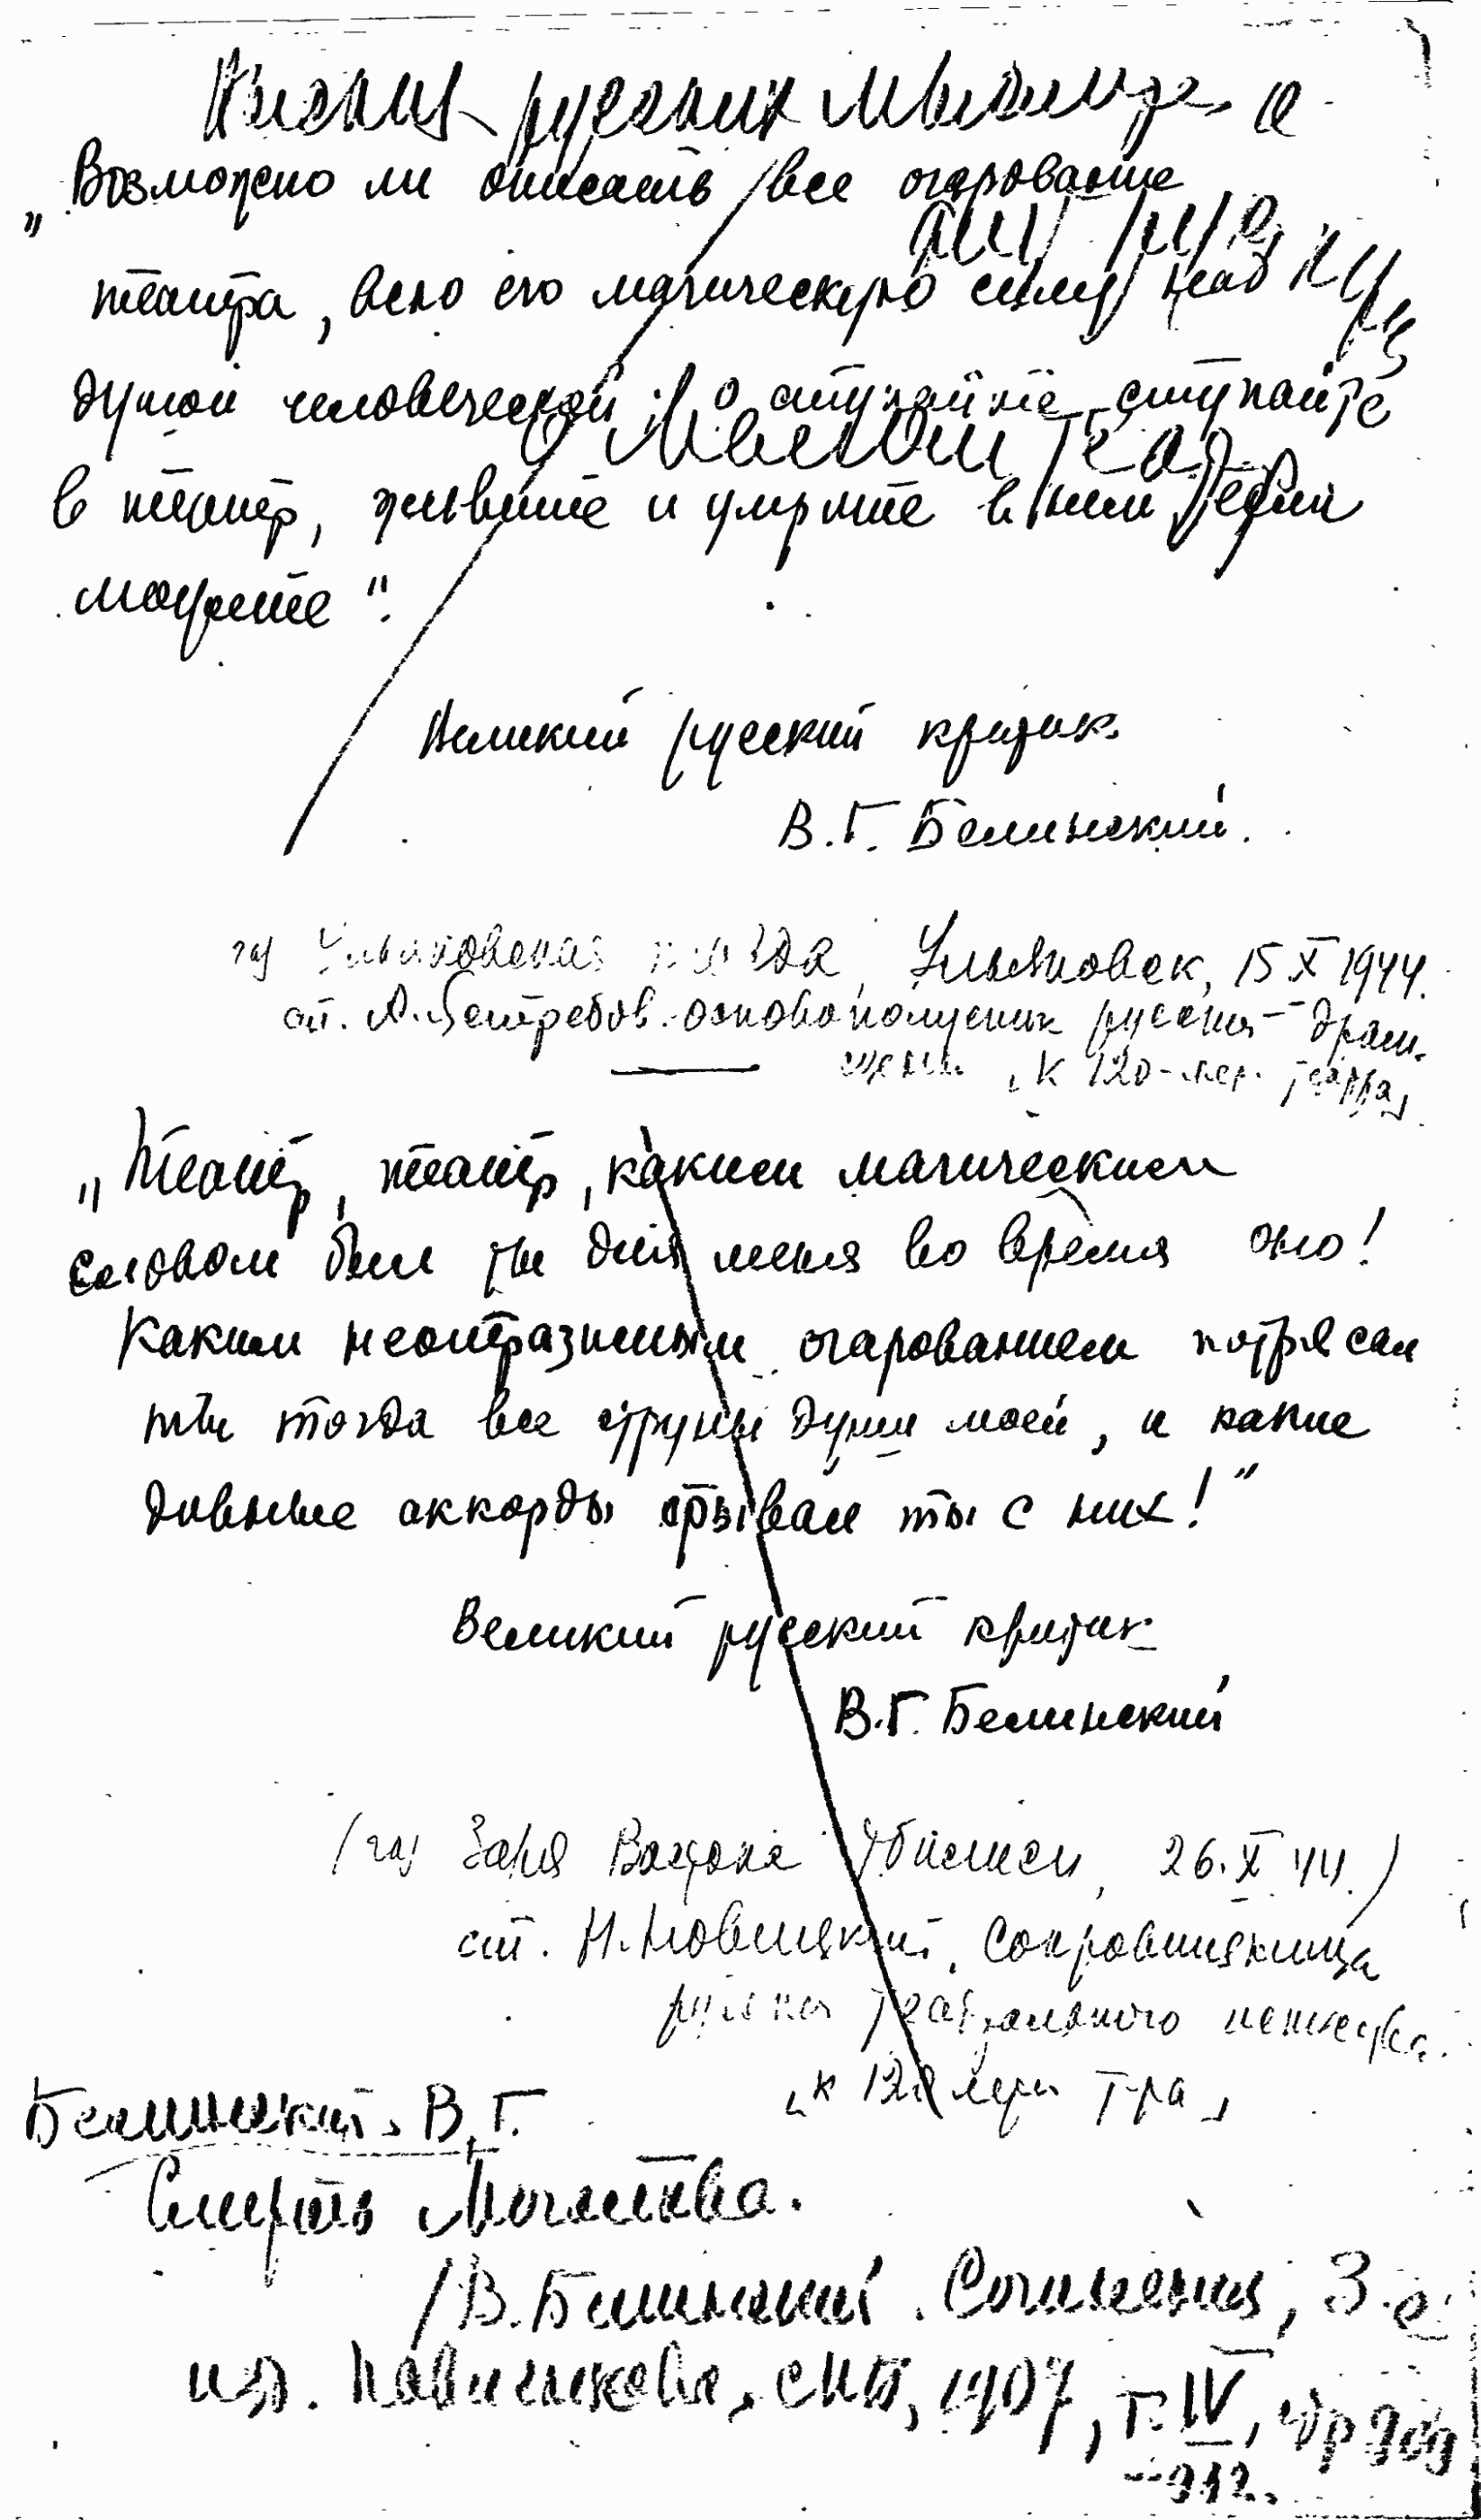 русских
„Возможно ли описать все очарование
театра, всю его магическую силу над
душой человеческой! О ступайте, ступайте
в театр, живите и умрите в нем если
можете".
Великий русский критик
В.Г. Белинский.
газ Ульяновская правда, Ульяновск, 15 X 1944.
ст. А. Ястребов. основоположник русской драм.
сцены „к 120-лет. театра„
„Театр, театр, каким магическим
словом был ты для меня во время оно!
Каким неотразимым очарованием потрясал
ты тогда все струны души моей, и какие
дивные аккорды срывал ты с них!"
Великий русский критик
В.Г. Белинский
(газ Заря Востока Тбилиси, 26.X 44.)
ст. Н. Сокровищница
русского театрального искусства.
„к 120 летию т-ра„
Белинский, В.Г.
Смерть Мочалова.
/В. Белинский. Сочинения, 3-е
изд. Павленкова, СПб, 1907, т. IV, стр
-912.